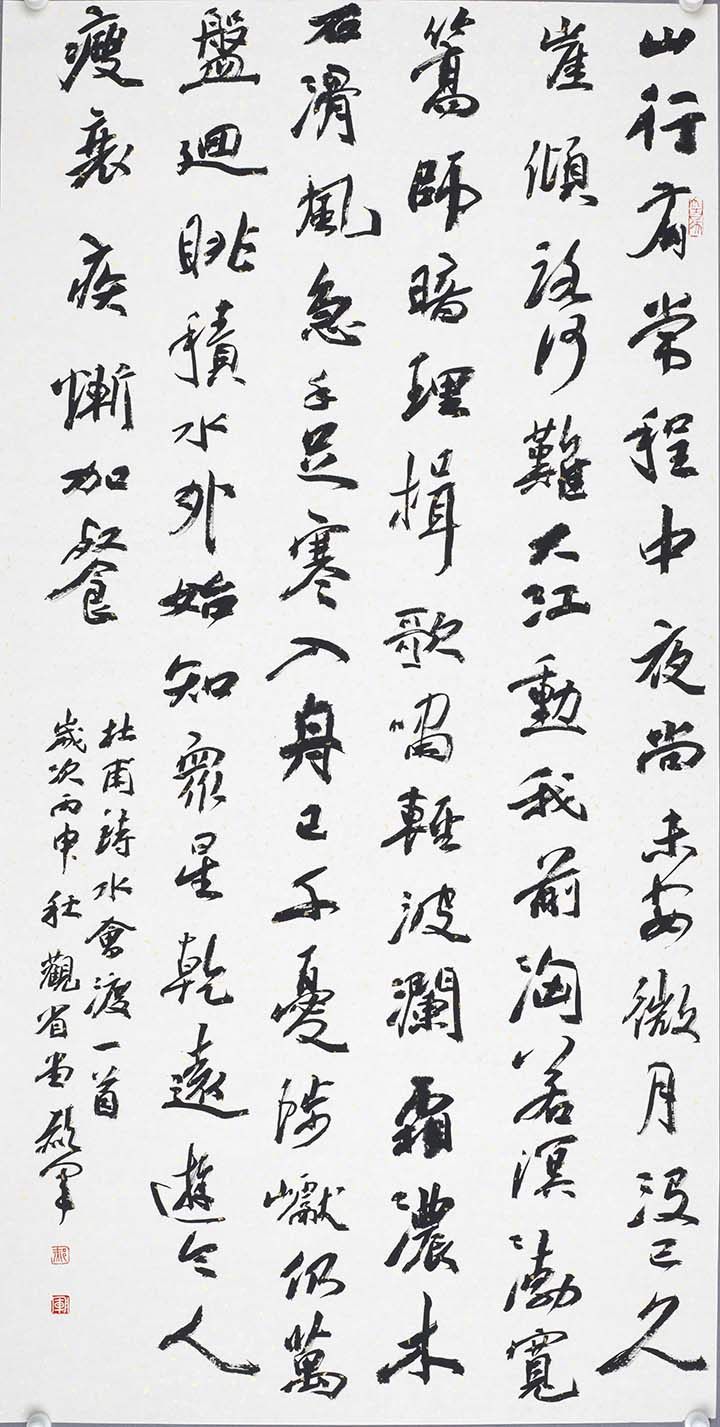 山行有常程中夜尚未安微月没已久
崖傾路何難大江動我前洶若溟渤寬
篙師暗理楫歌嘯輕波瀾霜濃木
石滑風急手足寒入舟已千憂陟巘仍萬
盤廻眺積水外始知眾星乾遠遊令人
瘦衰疾慚加餐
杜甫詩水會渡一首
歲次丙申秋觀省堂郝軍